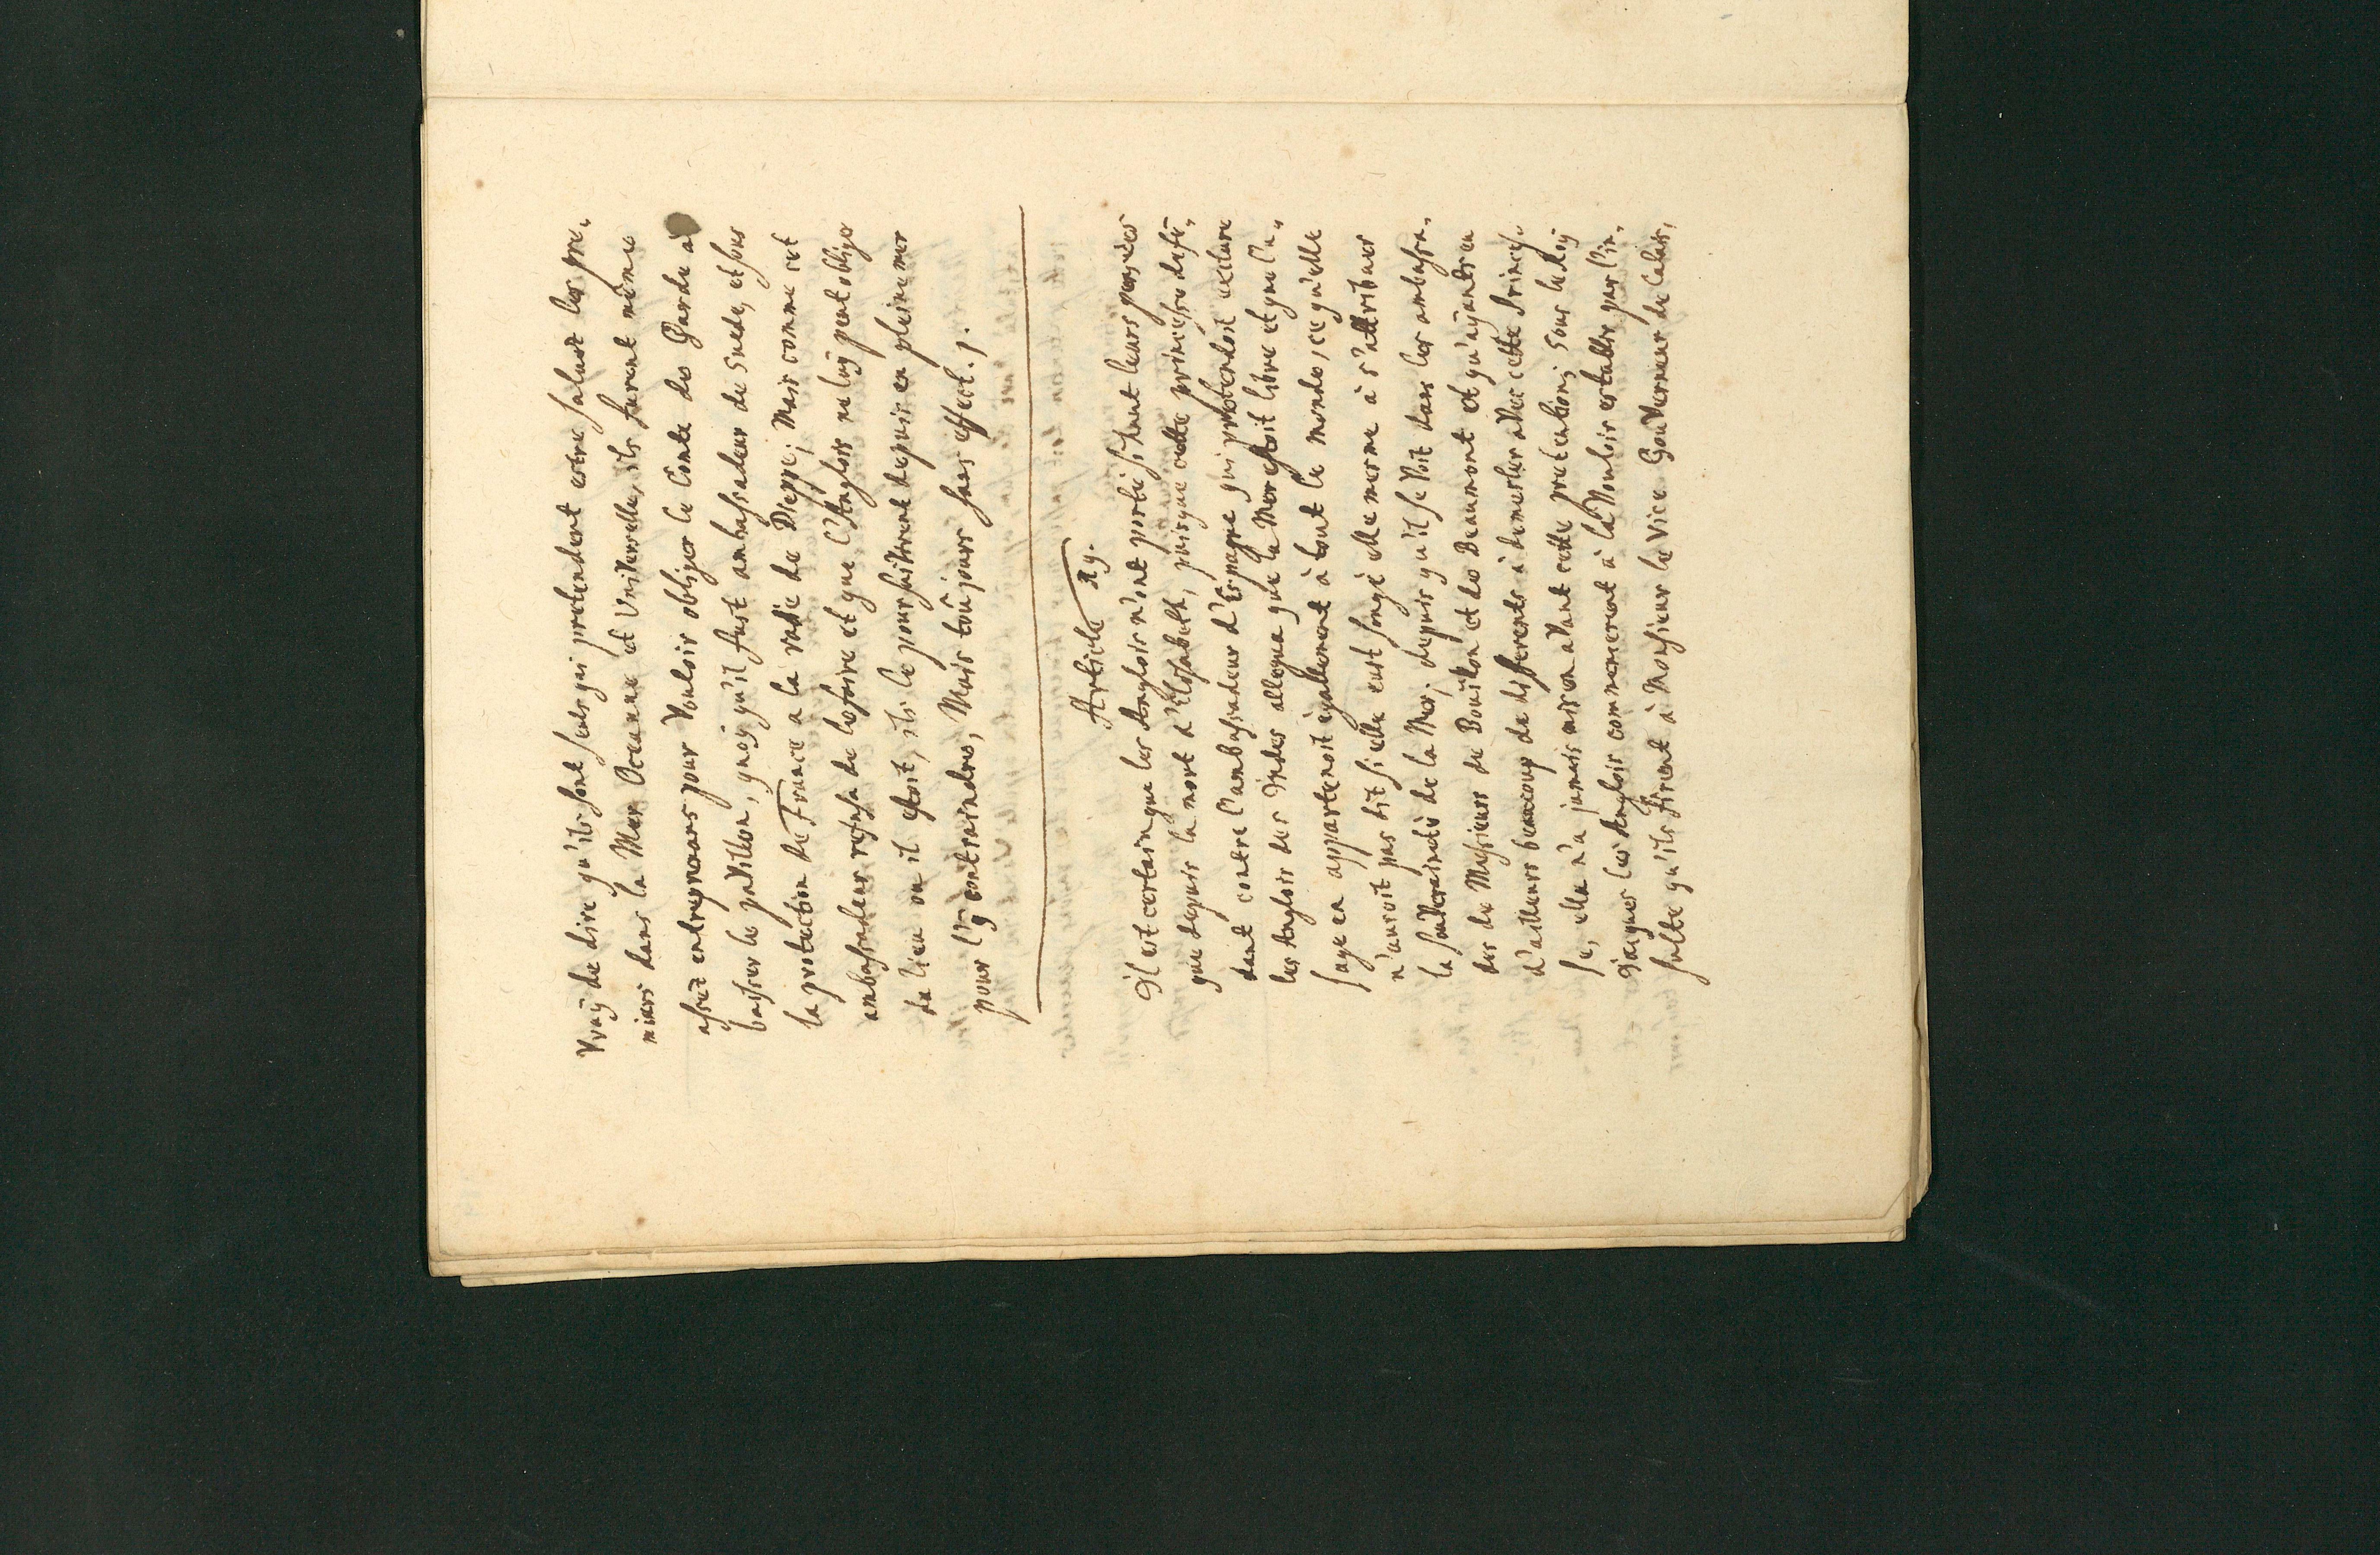 vraÿ de dire qu'ils sont seuls qui pretendent estre saluez les pre„
miers dans la Mer Oceanne et Universelle, ils furent même
assez entreprenans pour Vouloir obliger le Comte de Garde à
baisser le pavillon, quoy qu'il fust ambassadeur de Suede, et sous
la protection de France a la rade de Dieppe; Mais comme cet
ambassadeur refusa de le faire et que l'Anglois ne luÿ peut obliger
du lieu ou il estoit, ils le poursuivirent depuis en pleine mer
pour l'y contraindre, Mais toûjours sans effect.
Article
Il est certain que les Anglois n'ont porté si haut leurs pensées
que depuis la mort d'Elisabeth, puisque cette princesse defen„
dant contre l'ambassadeur d'Espagne qui pretendoit exclure
les Anglois des Indes allegua que la Mer estoit libre et que l'u„
sage en appartenoit également à tout le monde, ce qu'elle
n'auroit pas dit si elle eust songé elle mesme à s'attribuer
la souveraineté de la Mer, depuis qu'il se voit dans les ambassa„
des de Messieurs de Bouillon et de Beaumont et qu'ayants eu
d'ailleurs beaucoup de differents à demesler avec cette Princes„
se, elle n'a jamais mis en avant cette pretention; Sous le Roÿ
Jacques les Anglois commencerent à la vouloir establir par l'in„
sulte qu'ils firent à Monsieur le Vice Gouverneur de Calais,